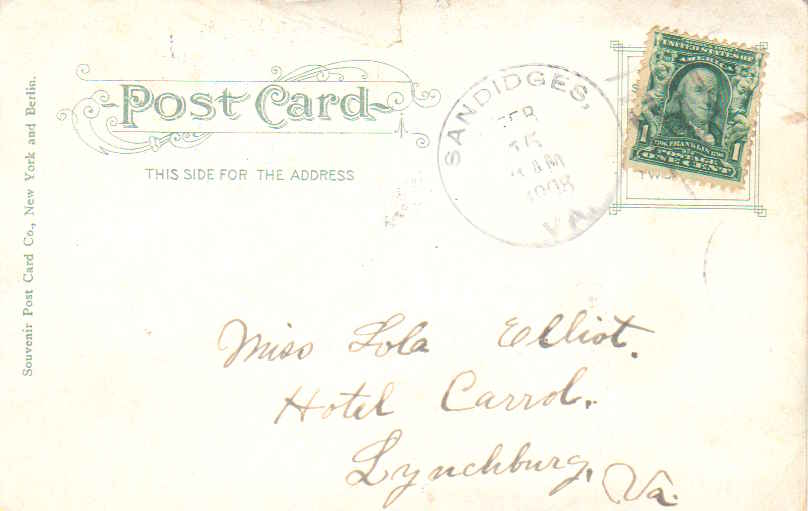 Post Card
THIS SIDE FOR THE ADDRESS
Souvenir Post Card Co., New York and Berlin.
SANDIDGES,
FEB
15
11 AM
1908
VA.
UNITED STATES OF
AMERICA
1 FRANKLIN 1
POSTAGE
ONE CENT
Miss Lola Elliot.
Hotel Carrol.
Lynchburg, Va.